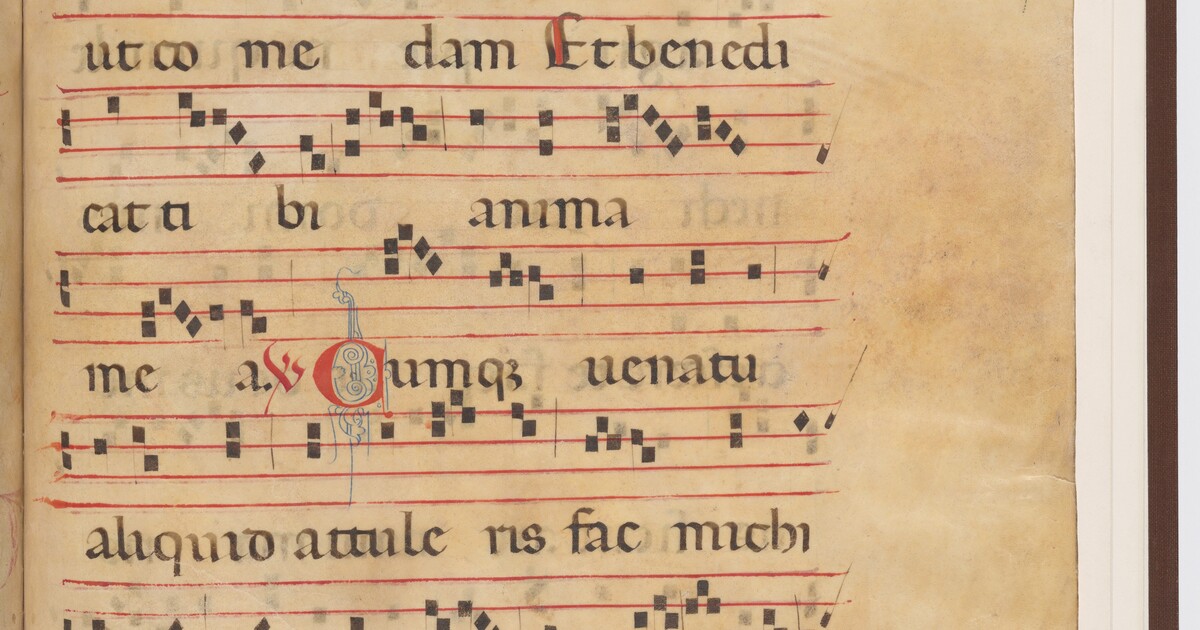 ut co me dam Et benedi
cat ti bi anima
me a. ℣ Cumqꝫ uenatu
aliquid attule ris fac michi